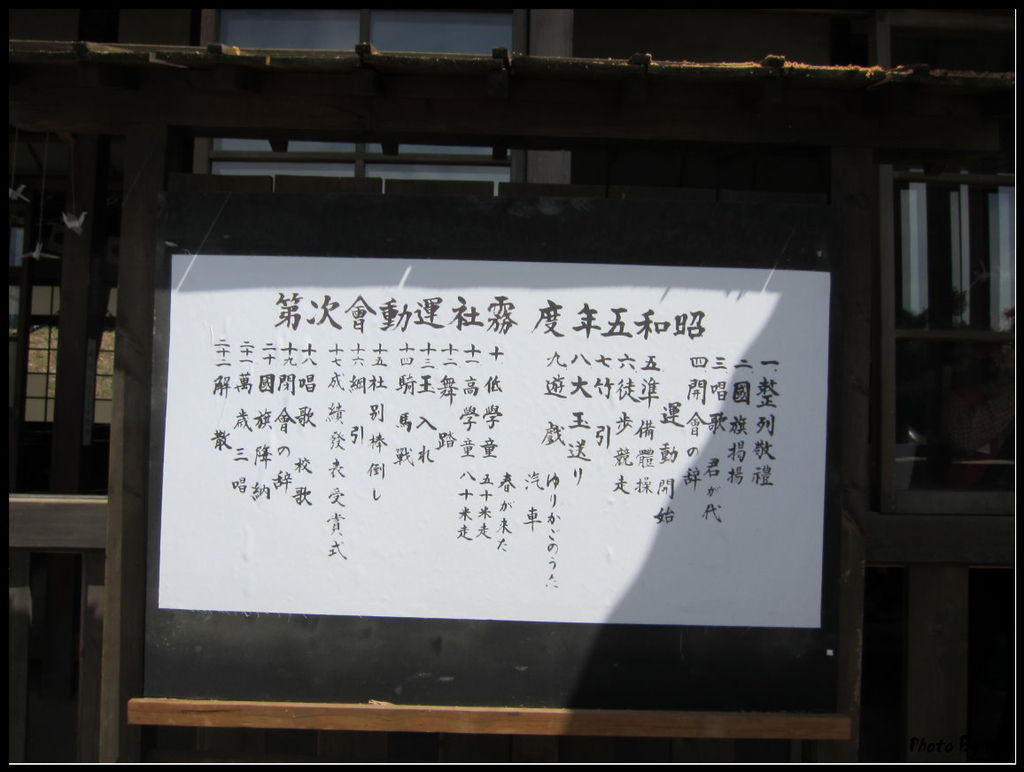 昭和五年度 霧社運動會次第
一、整列敬禮
二國旗揭揚
三唱歌 君が代
四開會の辞
運動開始
五準備體操
六徒歩競走
七竹引
八大玉送り
九遊戲 ゆりかごのうた
汽車
春が来た
十低學童 五十米走
十一高學童 八十米走
十二舞踏
十三玉入れ
十四騎馬戰
十五社別棒倒し
十六綱引
十七成績發表受賞式
十八唱歌 校歌
十九閉會の辞
二十國旗降納
二十一萬歳三唱
二十二解散
Photo By